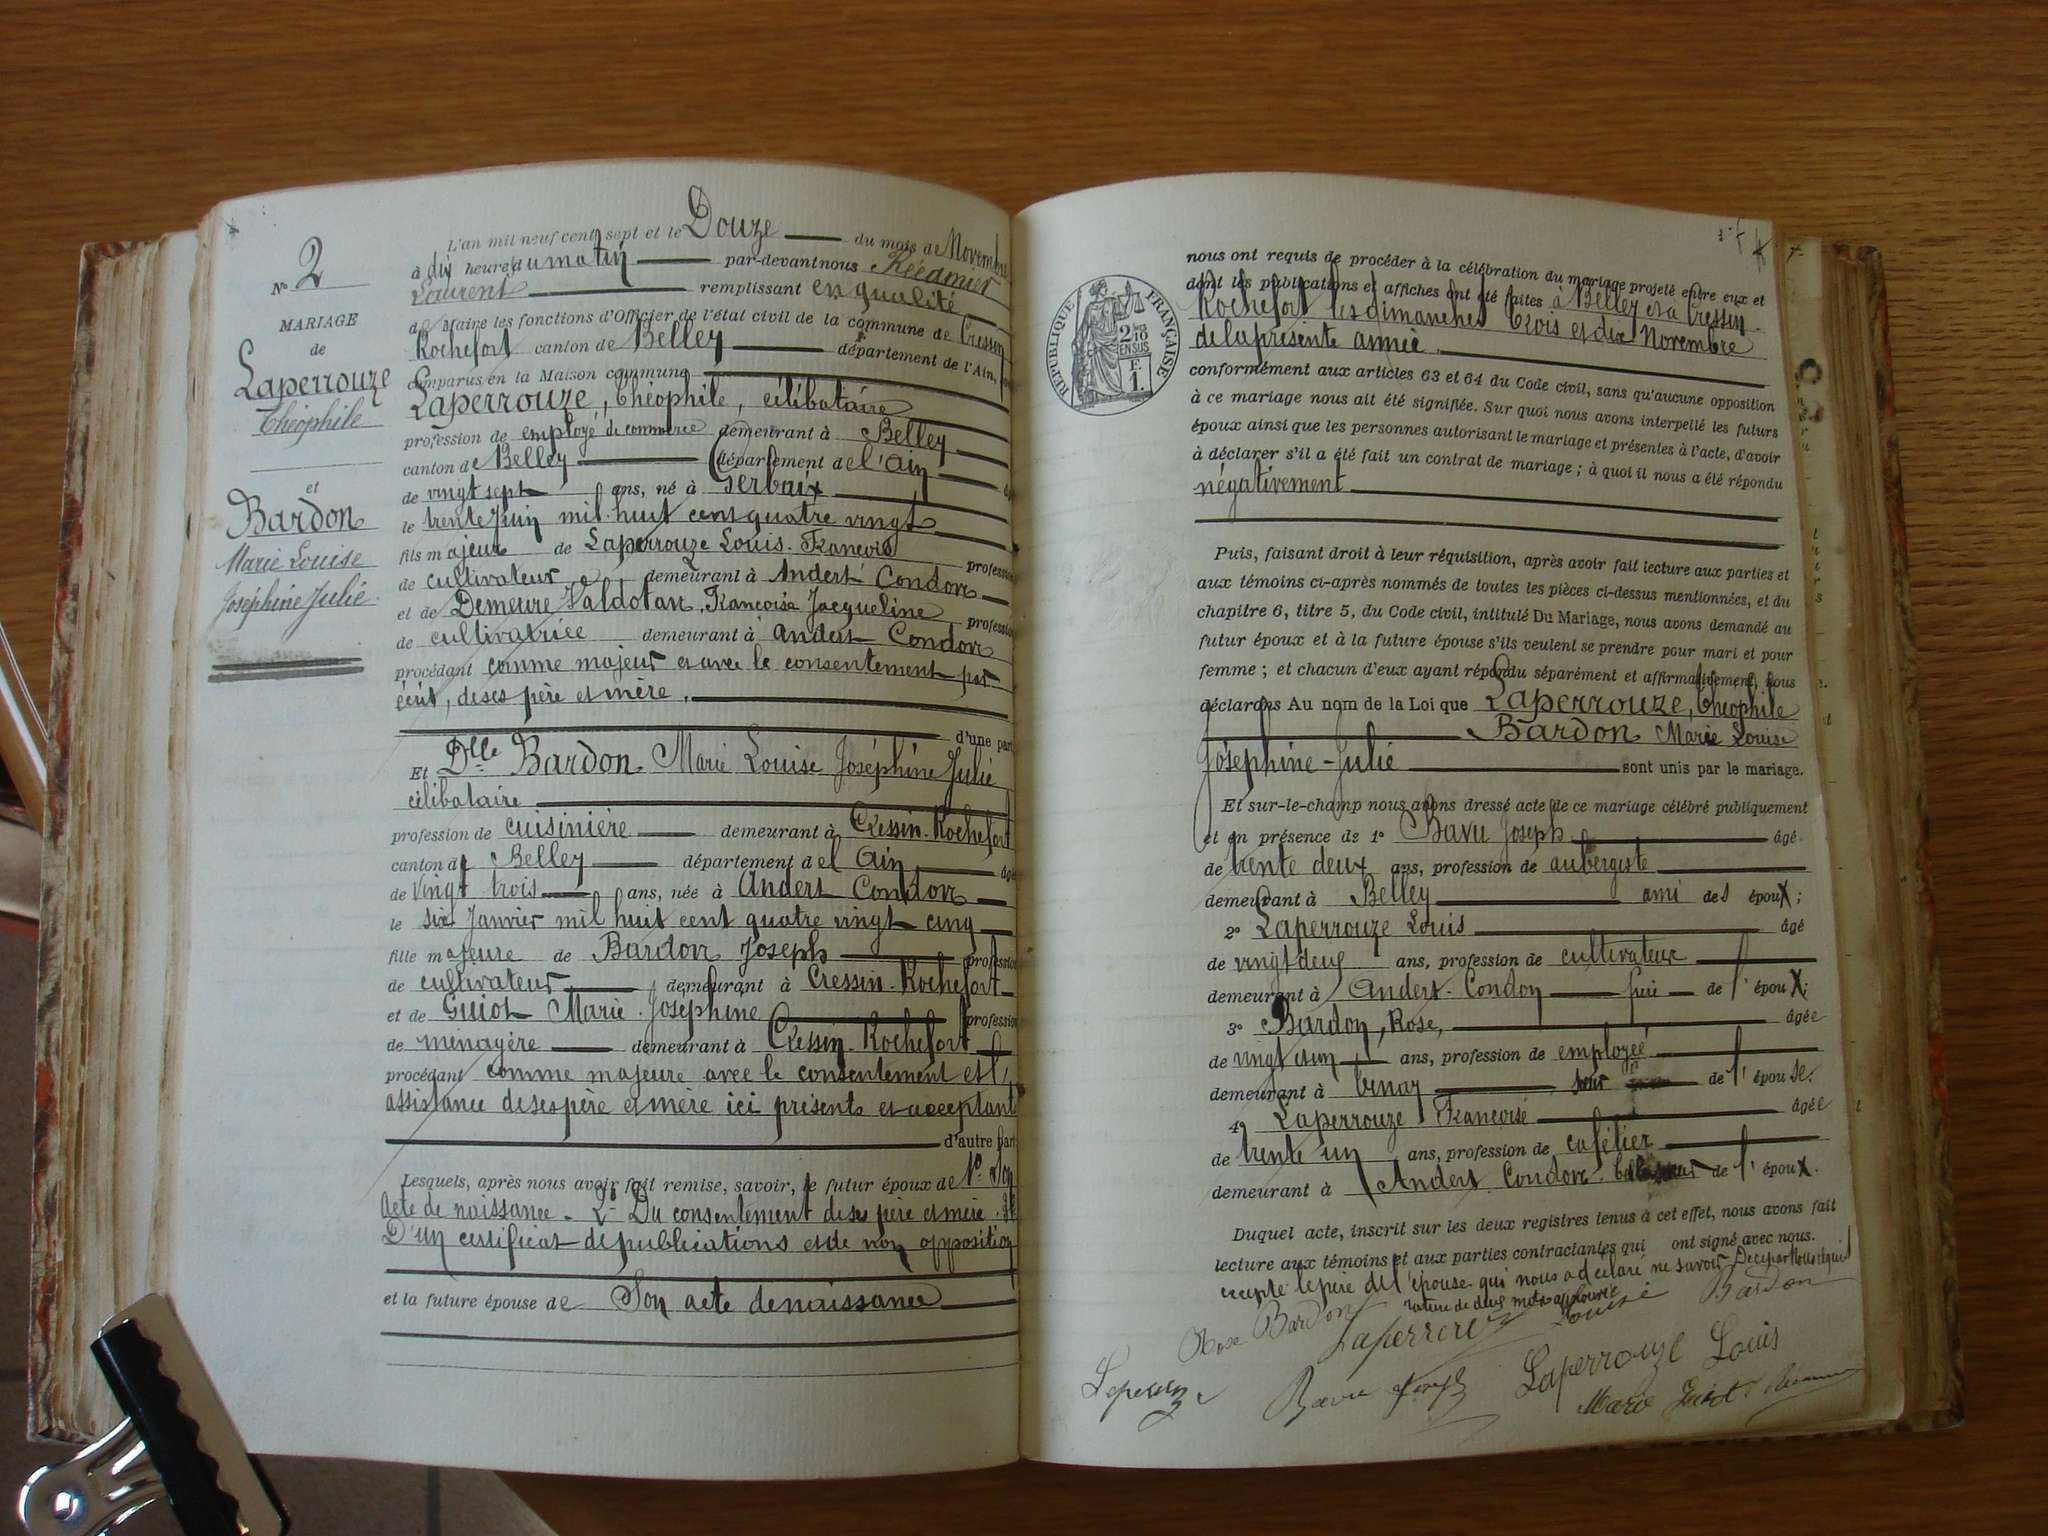 N° 2
MARIAGE
de
Laperrouze
Théophile
et
Bardon
Marie Louise
Joséphine Julie.
L'an mil neuf cent sept et le Douze du mois de Novembre
à dix heure du matin par-devant nous Récamier
Laurent remplissant en qualité
de Maire les fonctions d'Officier de l'état civil de la commune de Cressin
Rochefort canton de Belley département de l'Ain,
comparus en la Maison commune
Laperrouze, Théophile, célibataire
profession de employé de commerce demeurant à Belley
canton de Belley département de l'Ain
de vingt sept ans, né à Gerbaix
le trente Juin mil huit cent quatre vingt
fils majeur de Laperrouze Louis. François profession
de cultivateur demeurant à Andert Condon
et de Demeure Françoise Jacqueline profession
de cultivatrice demeurant à Andert Condon
procédant comme majeur et avec le consentement par
écrit, de ses père et mère.
d'une part
Et Dlle Bardon Marie Louise Joséphine Julie
célibataire
profession de cuisinière demeurant à Cressin-Rochefort
canton de Belley département de l Ain âgé
de vingt trois ans, née à Andert Condon
le six Janvier mil huit cent quatre vingt cinq
fille majeure de Bardon Joseph profession
de cultivateur demeurant à Cressin-Rochefort
et de Guiot Marie-Joséphine profession
de ménagère demeurant à Cressin-Rochefort
procédant comme majeure avec le consentement et l'
assistance de ses père et mère ici présents et acceptant
d'autre part
Lesquels, après nous avoir fait remise, savoir, le futur époux de 1° Son
acte de naissance - 2° Du consentement de ses père et mère. 3°
D'un certificat de publications et de non opposition
et la future épouse de Son acte de naissance
nous ont requis de procéder à la célébration du mariage projeté entre eux et
dont les publications et affiches ont été faites à Belley et à Cressin
Rochefort les dimanches trois et dix Novembre
de la présente année.
RÉPUBLIQUE FRANÇAISE
2/10 EN SUS
F.
1.
conformément aux articles 63 et 64 du Code civil, sans qu'aucune opposition
à ce mariage nous ait été signifiée. Sur quoi nous avons interpellé les futurs
époux ainsi que les personnes autorisant le mariage et présentes à l'acte, d'avoir
à déclarer s'il a été fait un contrat de mariage ; à quoi il nous a été répondu
négativement
Puis, faisant droit à leur réquisition, après avoir fait lecture aux parties et
aux témoins ci-après nommés de toutes les pièces ci-dessus mentionnées, et du
chapitre 6, titre 5, du Code civil, intitulé Du Mariage, nous avons demandé au
futur époux et à la future épouse s'ils veulent se prendre pour mari et pour
femme ; et chacun d'eux ayant répondu séparément et affirmativement, nous
déclarons Au nom de la Loi que Laperrouze, Théophile
Bardon Marie Louise
Joséphine-Julie sont unis par le mariage.
Et sur-le-champ nous avons dressé acte de ce mariage célébré publiquement
et en présence de 1° Bavu Joseph âgé
de trente deux ans, profession de aubergiste
demeurant à Belley ami des époux ;
2° Laperrouze Louis âgé
de vingt deux ans, profession de cultivateur
demeurant à Andert-Condon frère de l'époux ;
3° Bardon, Rose, âgée
de vingt et un ans, profession de employée
demeurant à soeur de l'épouse.
4° Laperrouze Françoise âgée
de trente un ans, profession de cafetier
demeurant à Andert. Condon de l'époux.
Duquel acte, inscrit sur les deux registres tenus à cet effet, nous avons fait
lecture aux témoins et aux parties contractantes qui ont signé avec nous.
excepté le père de l'épouse qui nous a déclaré ne savoir De ce par Nous requis
rature de deux mots approuvée
Rose Bardon Laperrouze Louise Bardon
Bavu Joseph Laperrouze Louis
Marie Guiot